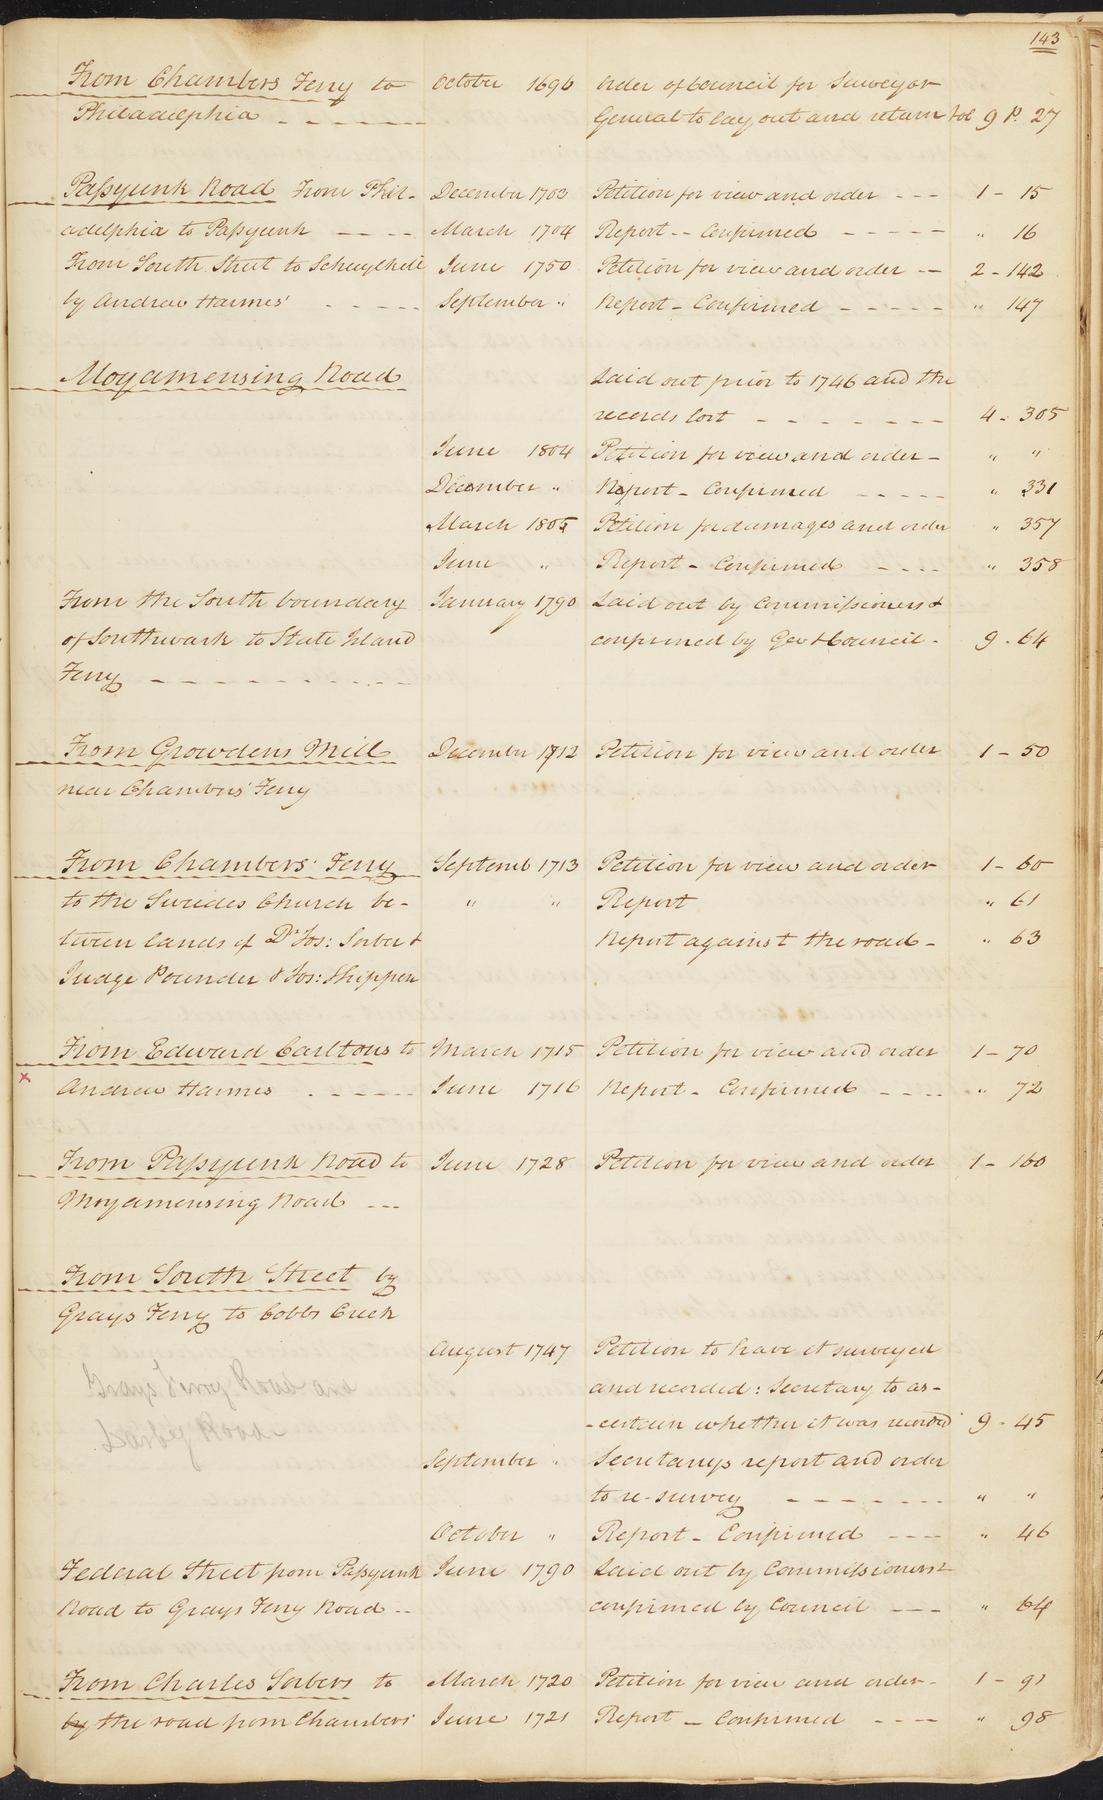 143
From Chambers Ferry to October 1696 Order of Council for Surveyor
Philadelphia - - - - - General to lay out and return Vol 9 P. 27
Passyunk Road From Phil- December 1703 Petition for view and order - - - 1 - 15
adelphia to Passyunk - - - - March 1704 Report - - Confirmed - - - - - " 16
From South Street to Schuylkill June 1750 Petition for view and order - - 2 - 142
by Andrew Hannes' - - - - September " Report - Confirmed - - - - - " 147
Moyamensing Road Laid out prior to 1746 and the
records lost - - - - - - - 4 - 305
June 1804 Petition for view and order - " "
December " Report - Confirmed - - - - - " 331
March 1805 Petition for damages and order " 357
June " Report - Confirmed - - - - " 358
From the South boundary January 1790 Laid out by Commissioners &
of Southwark to State Island confirmed by Gov & Council - 9 - 64
Ferry - - - - - - - - - -
From Growdens Mill December 1712 Petition for view and order 1 - 50
near Chambers' Ferry
From Chambers' Ferry Septemb 1713 Petition for view and order 1 - 60
to the Swedes Church be- " " Report " 61
tween lands of Dr Jos: Sorber & Report against the road - " 63
Judge Pounder & Jos: Shippen
From Edward Carltons to March 1715 Petition for view and order 1 - 70
x Andrew Hannes - - - - - June 1716 Report - Confirmed - - - - " 72
From Passyunk Road to June 1728 Petition for view and order 1 - 160
Moyamensing Road - - -
From South Street by
Grays Ferry to Cobbs Creek
August 1747 Petition to have it surveyed
Grays Ferry Road and and recorded: Secretary to as-
-certain whether it was recorded 9 - 45
Darby Road
September " Secretarys report and order
to re-survey - - - - - - " "
October " Report - Confirmed - - - - " 46
Federal Street from Passyunk June 1790 Laid out by Commissioners &
Road to Grays Ferry Road - - confirmed by Council - - - " 64
From Charles Sorbers to March 1720 Petition for view and order - 1 - 91
by the road from Chambers' June 1721 Report - Confirmed - - - - " 98